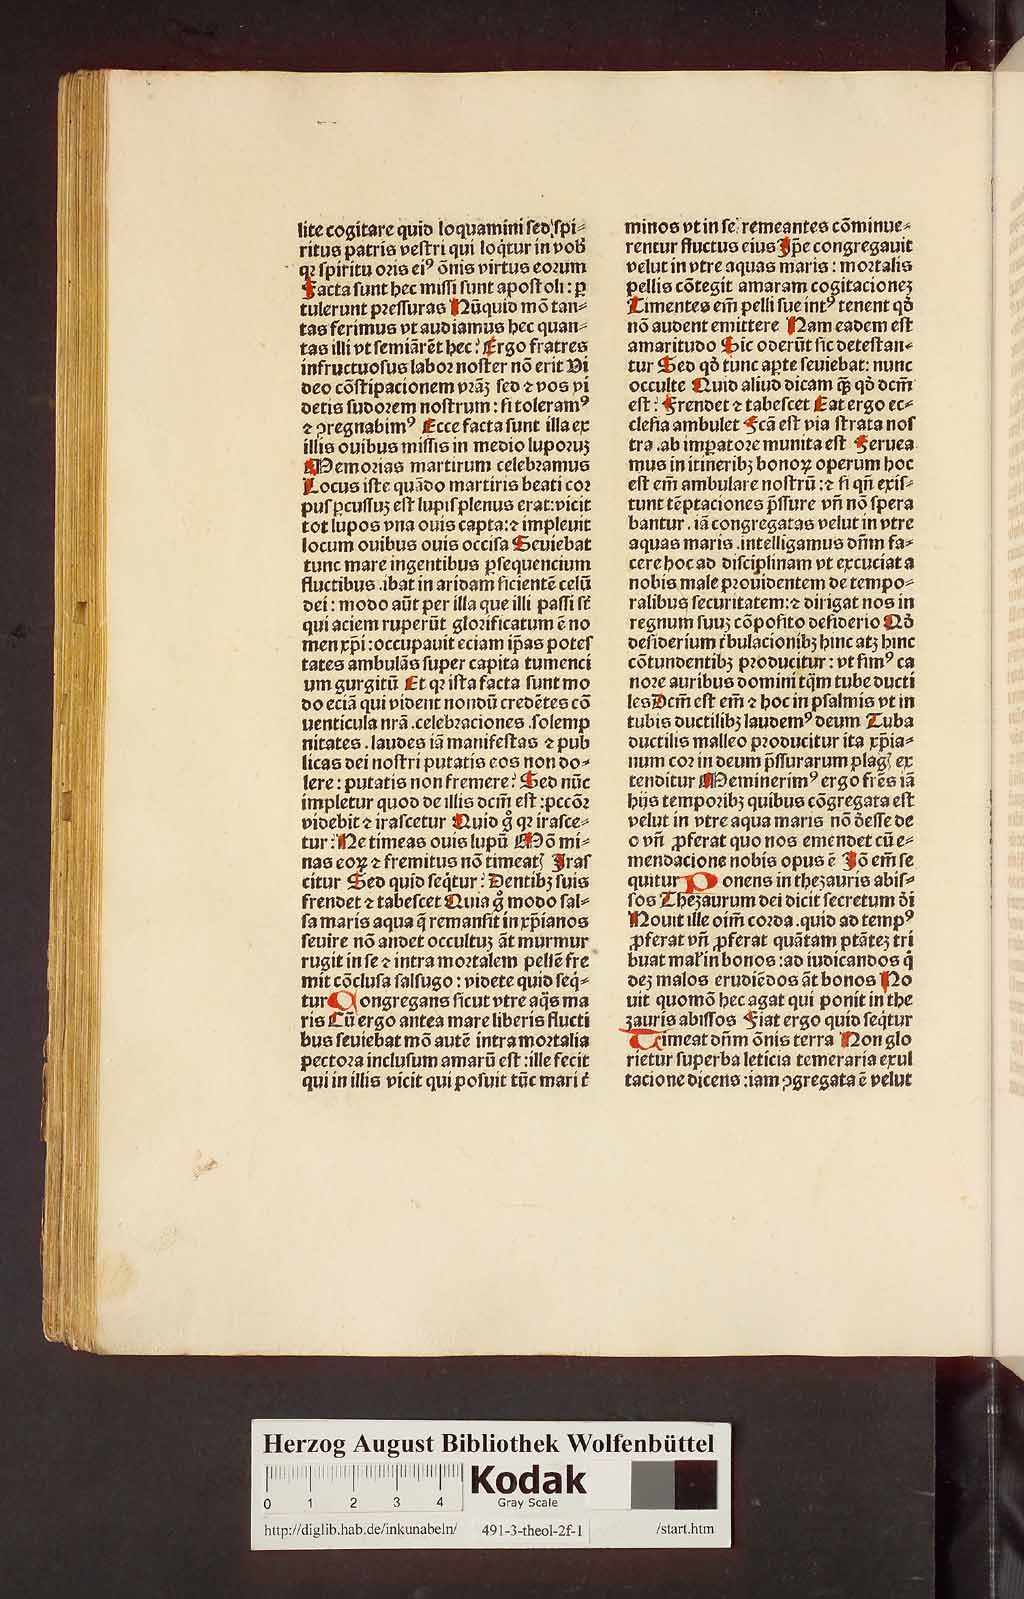 lite cogitare quid loquamini sed spi⸗
ritus patris vestri qui loq̄tur in vob
qꝛ spiritu oris eiꝰ õnis virtus eorum
Facta sunt hec missi sunt apostoli : ꝑ
tulerunt pressuras Nũquid mõ tan⸗
tas ferimus vt audiamus hec quan⸗
tas illi vt semiãrẽt hec: Ergo fratres
infructuosus labor noster nõ erit Vi
deo cõstipacionem vrãȝ sed ⁊ vos vi
detis sudorem nostrum : si toleramꝰ
⁊ ꝯregnabimꝰ Ecce facta sunt illa ex
illis ouibus missis in medio luporuȝ
Memorias martirum celebramus
Locus iste quãdo martiris beati cor
pus ꝑcussuȝ est lupis plenus erat:vicit
tot lupos vna ouis capta:⁊ impleuit
locum ouibus ouis occisa Seuiebat
tunc mare ingentibus ꝑsequencium
fluctibus .ibat in aridam sicientẽ celũ
dei : modo aũt per illa que illi passi st̃
qui aciem ruperũt glorificatum ẽ no
men xp̃i :occupauit eciam ip̃as potes
tates ambulãs super capita tumenci
um gurgitũ Et qꝛ ista facta sunt mo
do eciã qui vident nondũ credẽtes cõ
uenticula nrã .celebraciones .solemp
nitates .laudes iã manifestas ⁊ pub
licas dei nostri putatis eos non do⸗
lere : putatis non fremere: Sed nũc
impletur quod de illis dcm̃ est :pccõr
videbit ⁊ irascetur Quid g̊ qꝛ irasce⸗
tur: Ne timeas ouis lupũ Mõ mi⸗
nas eoꝝ ⁊ fremitus nõ timeat Iras
citur Sed quid seq̄tur: Dentibȝ suis
frendet ⁊ tabescet Quia g̊ modo sal⸗
sa maris aqua q̄ remansit in xp̃ianos
seuire nõ audet occultuȝ ãt murmur
rugit in se ⁊ intra mortalem pellẽ fre
mit cõclusa salsugo : videte quid seq̄⸗
tur Congregans sicut vtre aq̃s ma
ris Cũ ergo antea mare liberis flucti
bus seuiebat mõ autẽ intra mortalia
pectora inclusum amarũ est :ille fecit
qui in illis vicit qui posuit tũc mari t̃
minos vt in se remeantes cõminue⸗
rentur fluctus eius Ip̃e congregauit
velut in vtre aquas maris : mortalis
pellis cõtegit amaram cogitacioneȝ
Timentes em̃ pelli sue intꝰ tenent qð
nõ audent emittere Nam eadem est
amaritudo Sic oderũt sic detestan⸗
tur Sed qð tunc aꝑte seuiebat: nunc
occulte Quid aliud dicam q̃ȝ qð dcm̃
est: Frendet ⁊ tabescet Eat ergo ec⸗
clesia ambulet Fcã est via strata nos
tra .ab imꝑatore munita est Feruea
mus in itineribȝ bonoꝝ operum hoc
est em̃ ambulare nostrũ :⁊ si qñ exis⸗
tunt tẽptaciones p̃ssure vñ nõ spera
bantur . iã congregatas velut in vtre
aquas maris .intelligamus dñm fa⸗
cere hoc ad disciplinam vt excuciat a
nobis male prouidentem de tempo⸗
ralibus securitatem:⁊ dirigat nos in
regnum suuȝ cõposito desiderio Qð
desiderium tˈbulacionibȝ hinc atȝ hinc
cõtundentibȝ producitur : vt simꝰ ca
nore auribus domini tq̃m tube ducti
les Dcm̃ est em̃ ⁊ hoc in psalmis vt in
tubis ductilibȝ laudemꝰ deum Tuba
ductilis malleo producitur ita xp̃ia⸗
num cor in deum p̃ssurarum plag ex
tenditur Meminerimꝰ ergo fr̃es iã
hijs temporibȝ quibus cõgregata est
velut in vtre aqua maris nõ deesse de
o vñ ꝓferat quo nos emendet cũ e⸗
mendacione nobis opus ẽ Iõ em̃ se
quitur Ponens in theȝauris abis⸗
sos Theȝaurum dei dicit secretum di
Nouit ille oim̃ corda .quid ad tempꝰ
ꝓferat vñ ꝓferat quãtam ptãteȝ tri
buat maˈl in bonos :ad iudicandos q̇
deȝ malos erudiẽdos ãt bonos No
uit quomõ hec agat qui ponit in the
ȝauris abissos Fiat ergo quid seq̄tur
Timeat dñm õnis terra Non glo
rietur superba leticia temeraria exul
tacione dicens :iam ꝯgregata ẽ velut
Herzog August Bibliothek Wolfenbüttel
0 1 2 3 4
Kodak
Gray Scale
http://diglib.hab.de/inkunabeln/ 491-3-theol-2f-1 /start.htm